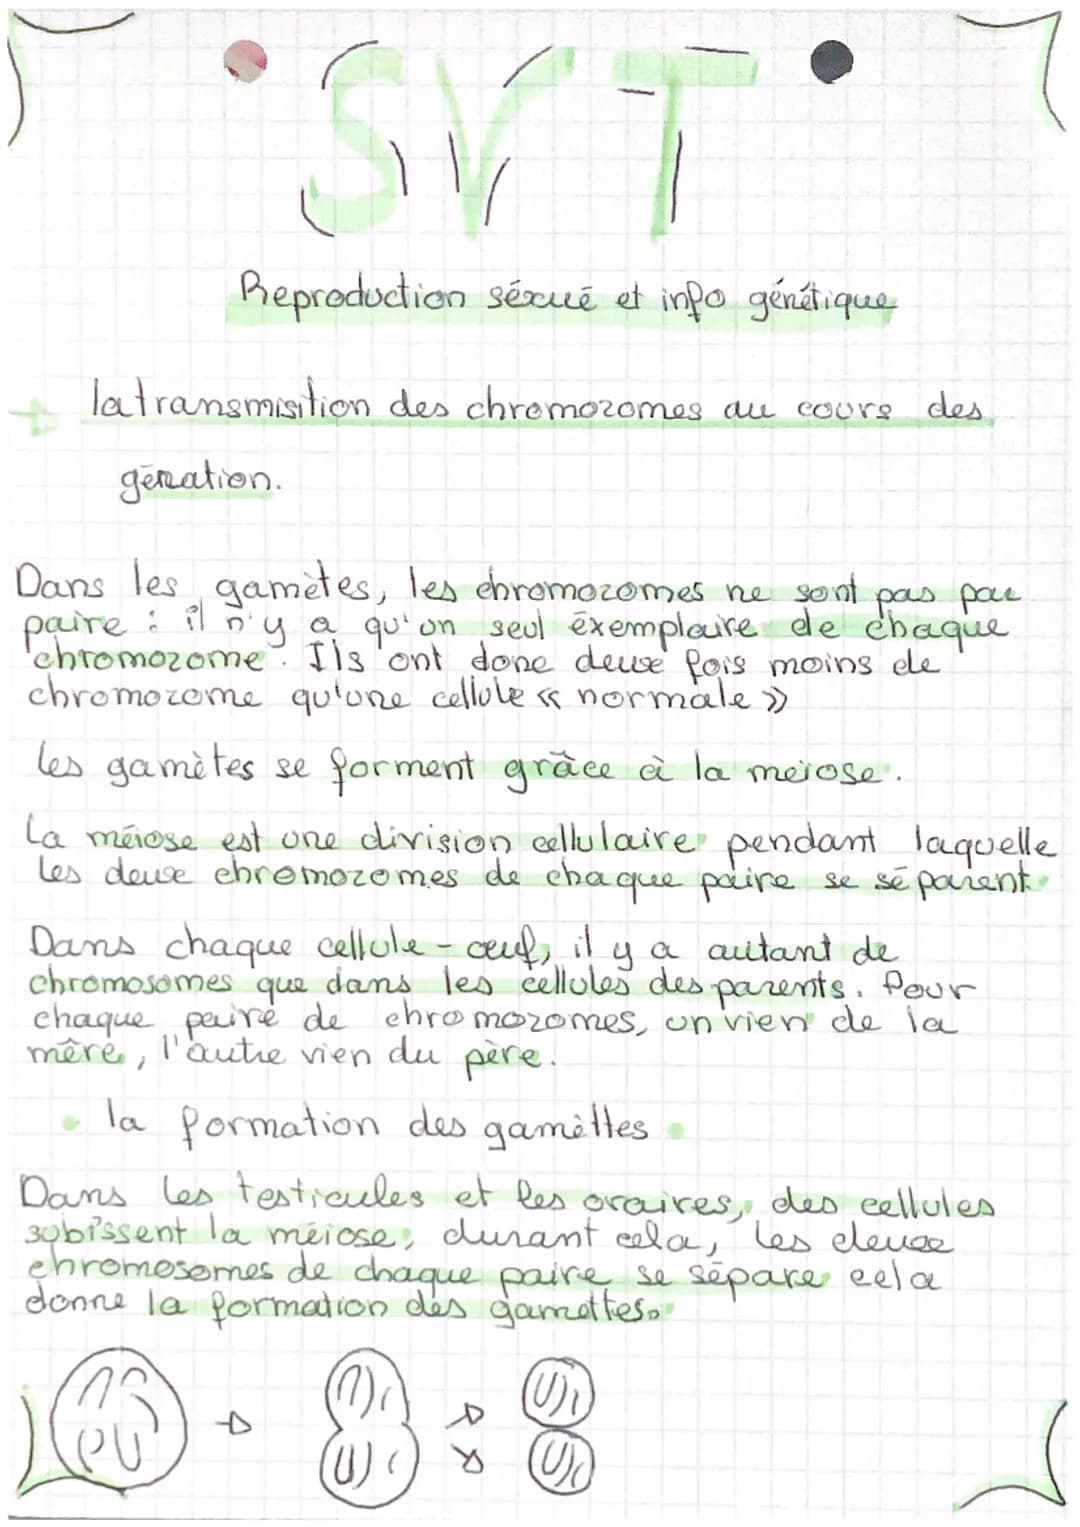 SVT
Reproduction séxué et info génétique
la transmisition des chromozomes au cours des
génation.
Dans les gamètes, les chromozomes ne sont pas par
paire : il n'y a qu'un seul éxemplaire de chaque
chromozome. Ils ont donc deux fois moins de
chromozome qu'une cellule « normale »
les gamètes se forment grâce à la meiose.
La méiose est une division cellulaire pendant laquelle
les deux chromozomes de chaque paire se séparent.
Dans chaque cellule-œuf, il y a autant de
chromosomes que dans les cellules des parents. Pour
chaque paire de chromozomes, un vien de la
mère, l'autre vien du père.
• la formation des gamèttes
Dans les testicules et les oraires, des cellules
subissent la méiose, durant cela, les deux
chromosomes de chaque paire se sépare cela
donne la formation des gamettes.